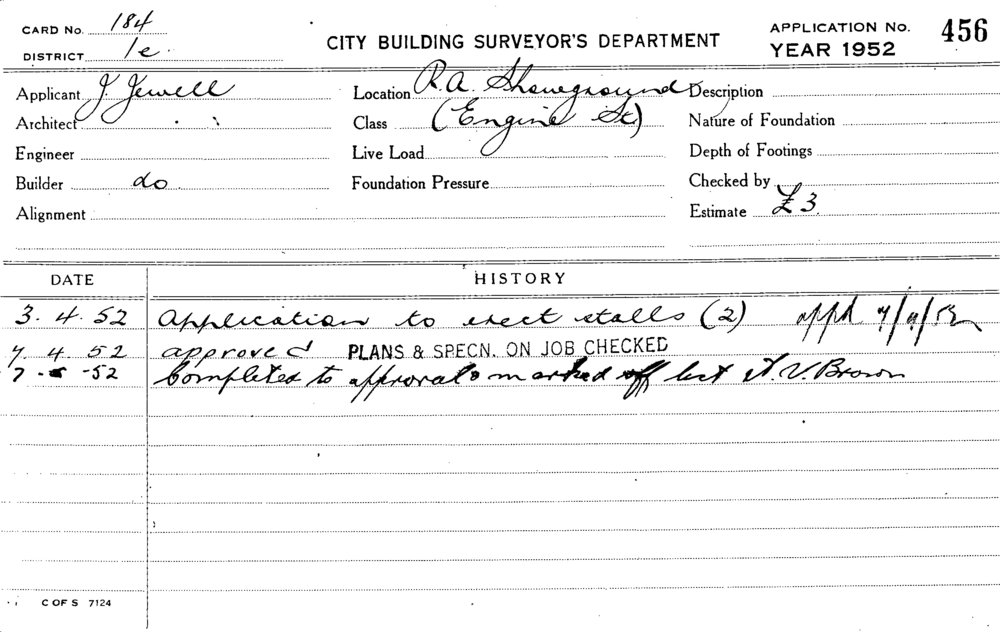 CARD No. 184 CITY BUILDING SURVEYOR'S DEPARTMENT APPLICATION No. 456
DISTRICT 1e. YEAR 1952
Applicant J. Jewell Location R.A. Showground Description
Architect Class (Engine St) Nature of Foundation
Engineer Live Load Depth of Footings
Builder do Foundation Pressure Checked by
Alignment Estimate £3
DATE HISTORY
3. 4. 52 Application to erect stalls (2) appd 7/4/52
7. 4. 52 approved PLANS & SPECN. ON JOB CHECKED
7 - 5 - 52 Completed to approval & marked off list V. Brown
C OF S 7124